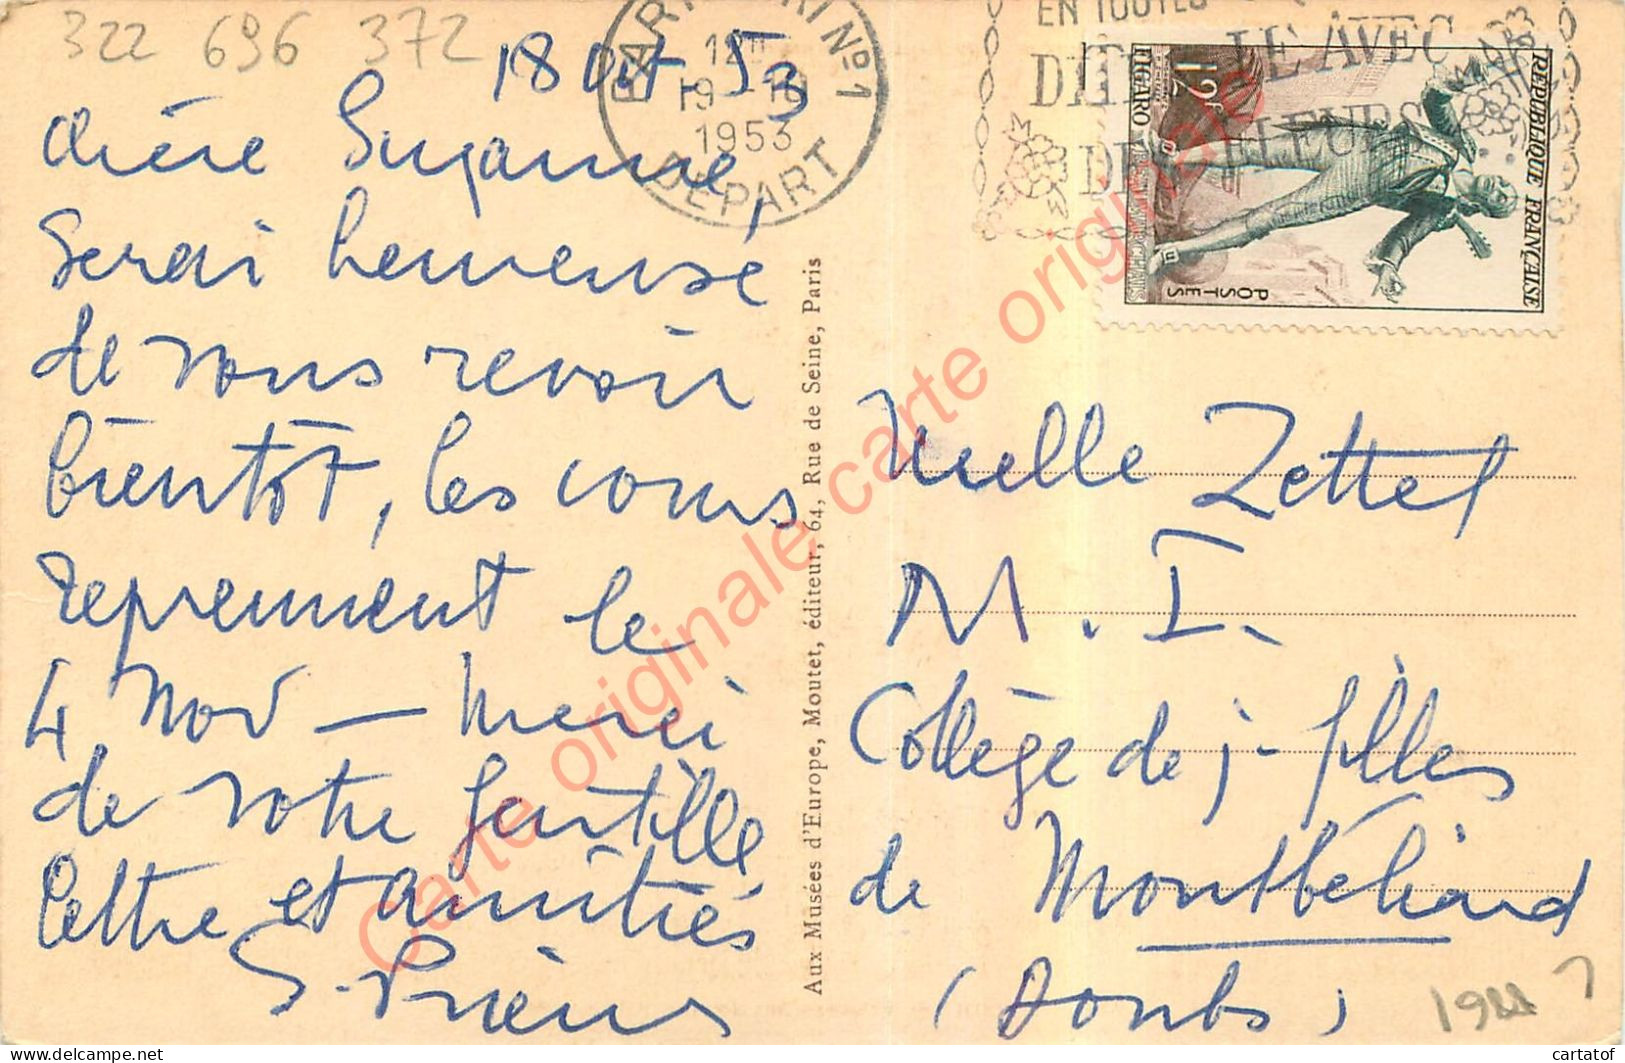 322 696 372
18 Oct. 53
chère Suzanne,
Serai heureuse
de vous revoir
bientôt, les cours
reprennent le
4 Nov — Merci
de votre gentille
lettre et amitiés
12H
19-10
1953
DEPART
N°1
EN TOUTES
DITES LE AVEC
DES FLEURS
REPUBLIQUE FRANÇAISE
POSTES
FIGARO
12F
Aux Musées d'Europe, Moutet, éditeur, 64, Rue de Seine, Paris
Melle Zettel
M. I.
Collège de j. filles
de Montbéliard
(Doubs)
Carte originale carte originale
cartatof